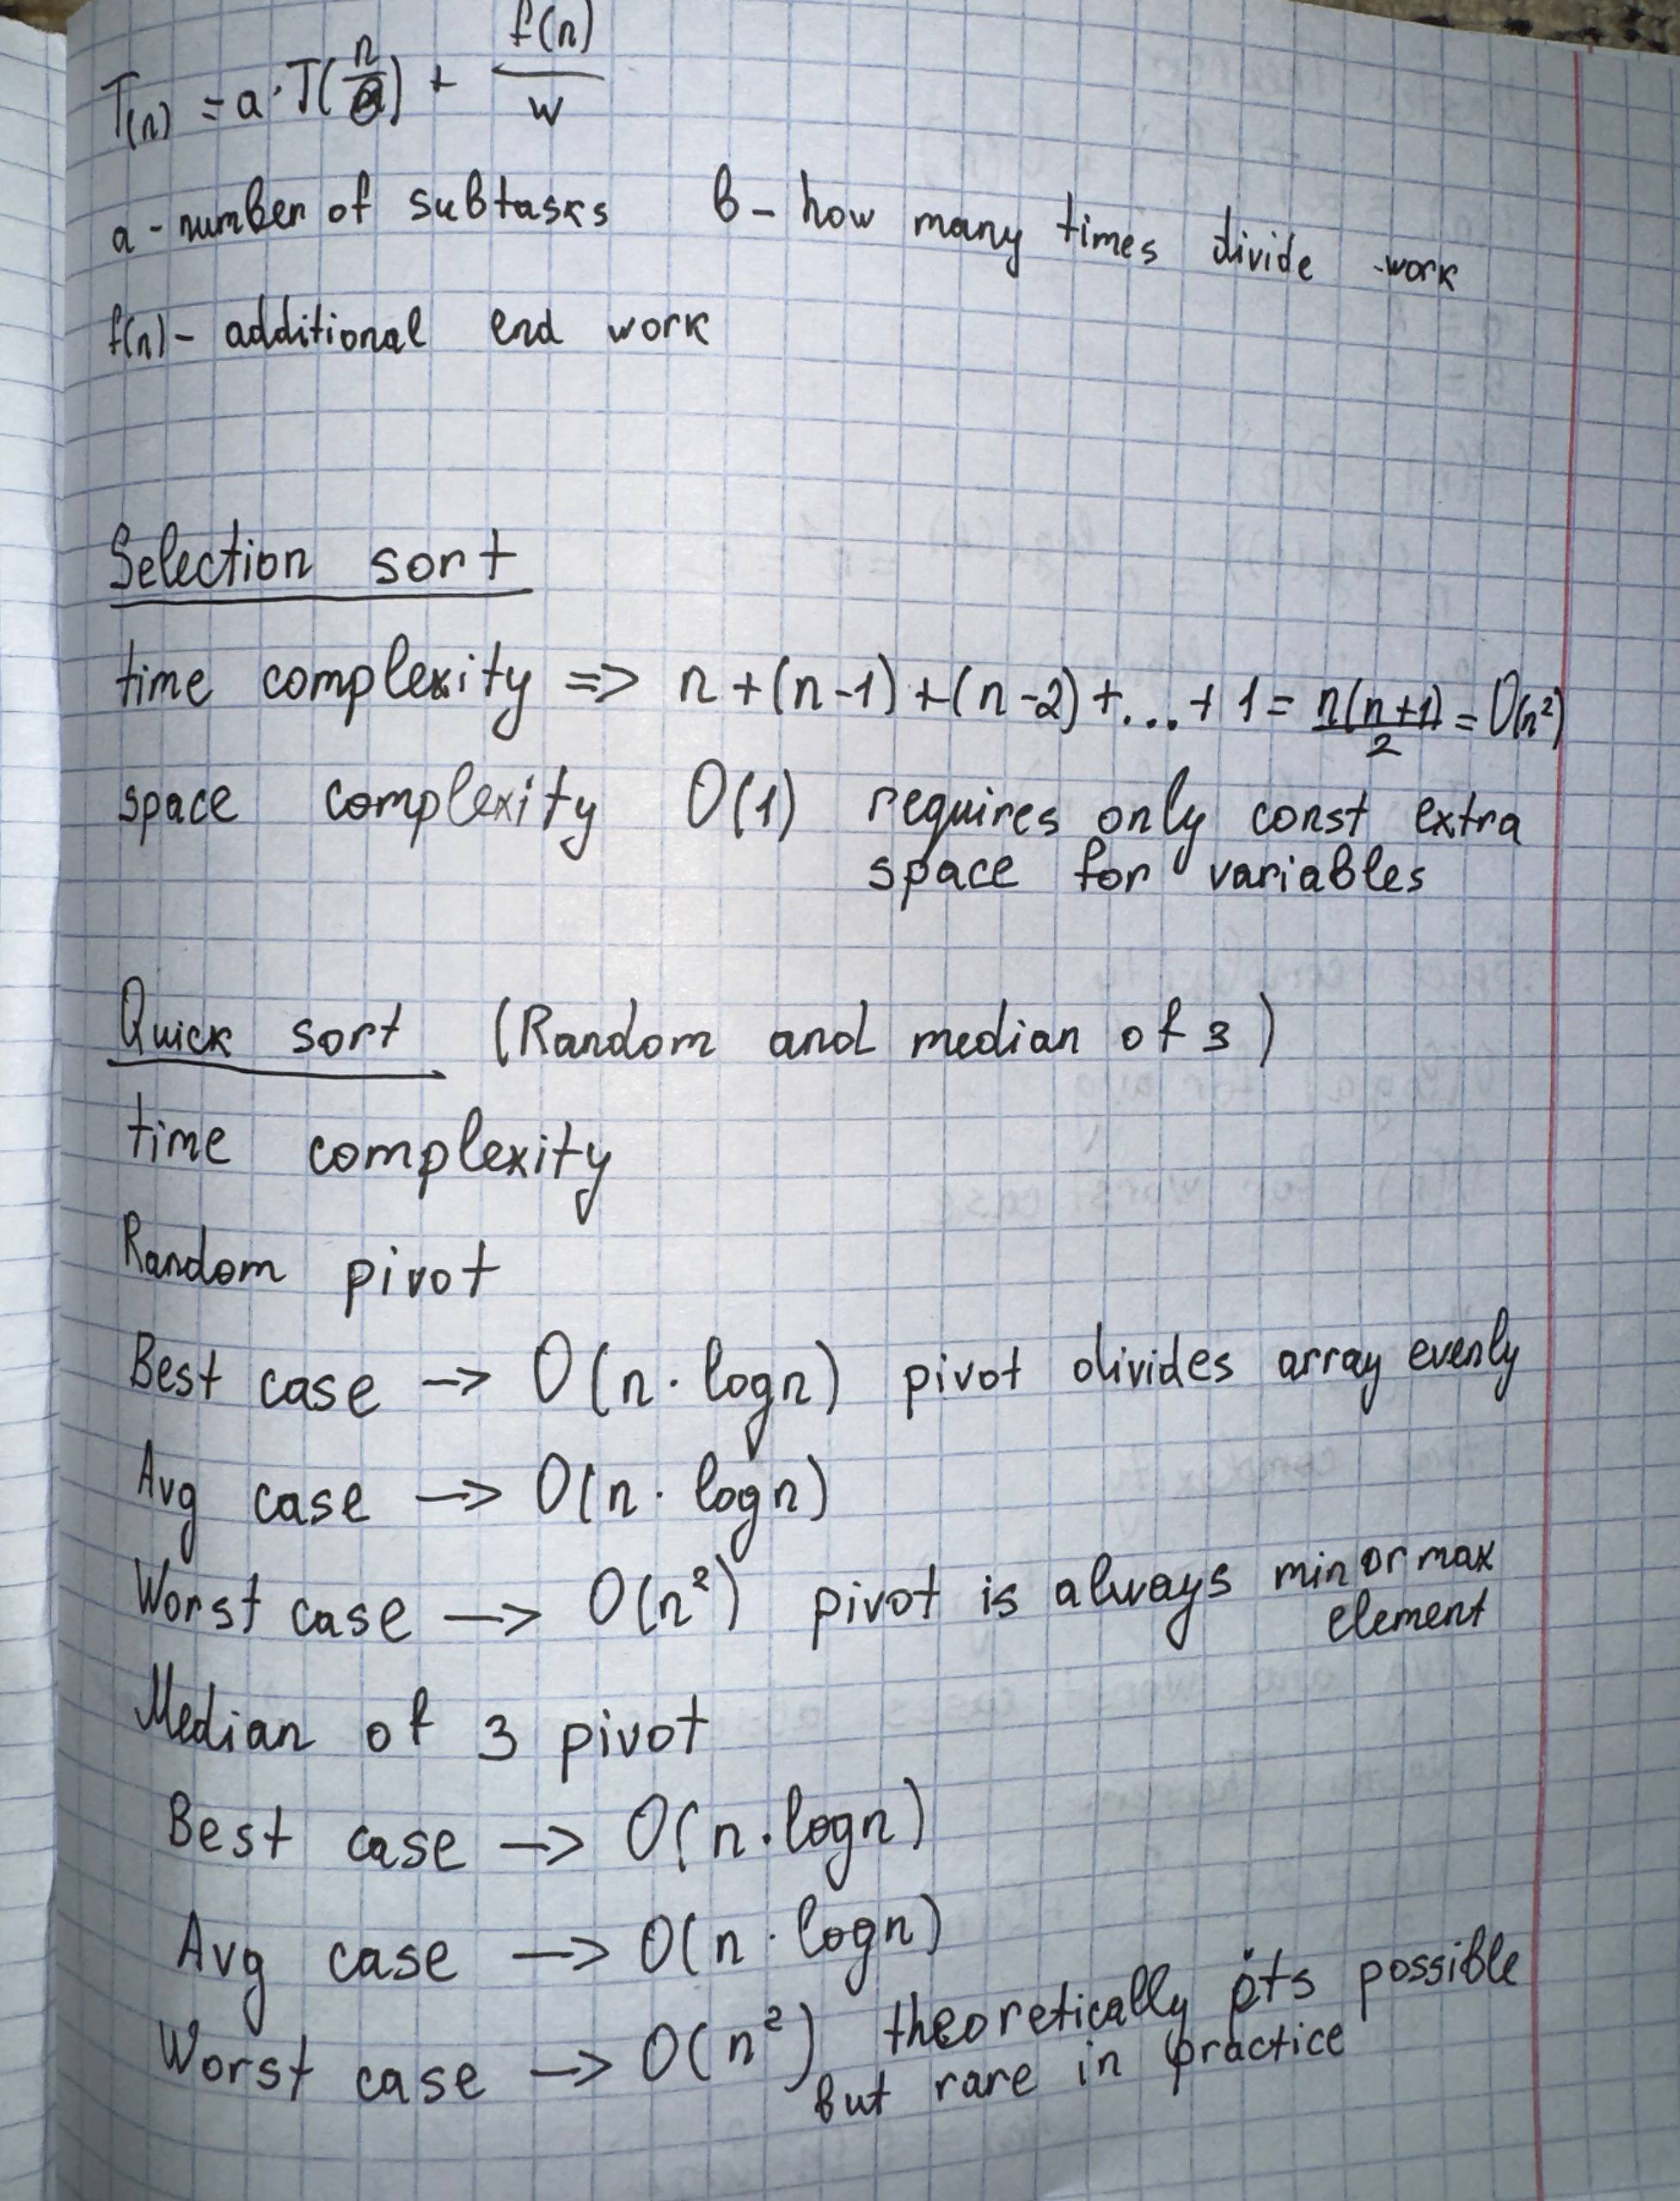 T(n) = a · T(n/b) + f(n)/w
a - number of subtasks b - how many times divide work
f(n) - additional end work
Selection sort
time complexity => n + (n-1) + (n-2) + ... + 1 = n(n+1)/2 = O(n²)
space complexity O(1) requires only const extra
space for variables
Quick sort (Random and median of 3)
time complexity
Random pivot
Best case -> O(n · logn) pivot divides array evenly
Avg case -> O(n · logn)
Worst case -> O(n²) pivot is always min or max
element
Median of 3 pivot
Best case -> O(n · logn)
Avg case -> O(n · logn)
Worst case -> O(n²) theoretically its possible
but rare in practice